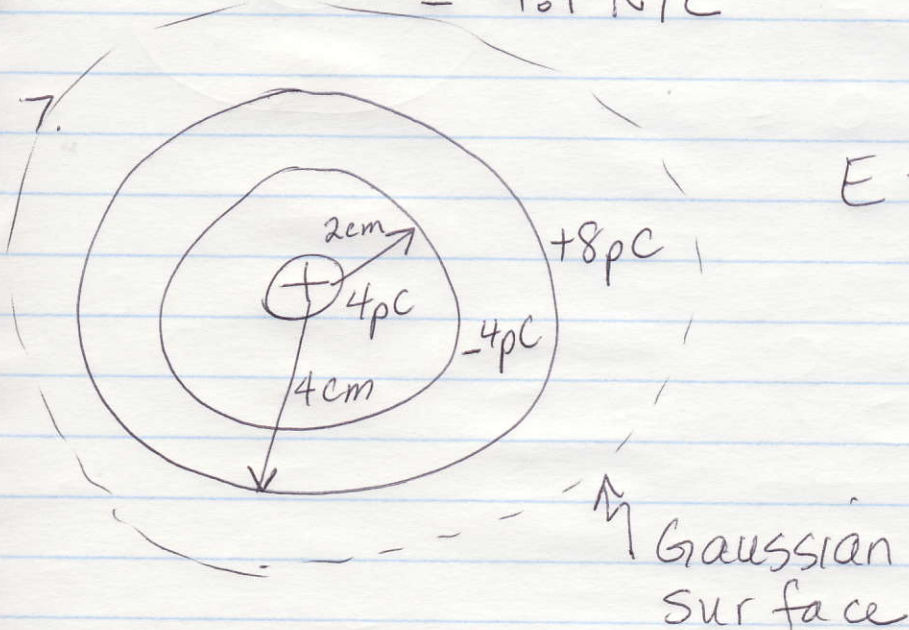 7.
E
2cm
+8pC
+
4pC
-4pC
4cm
Gaussian
surface